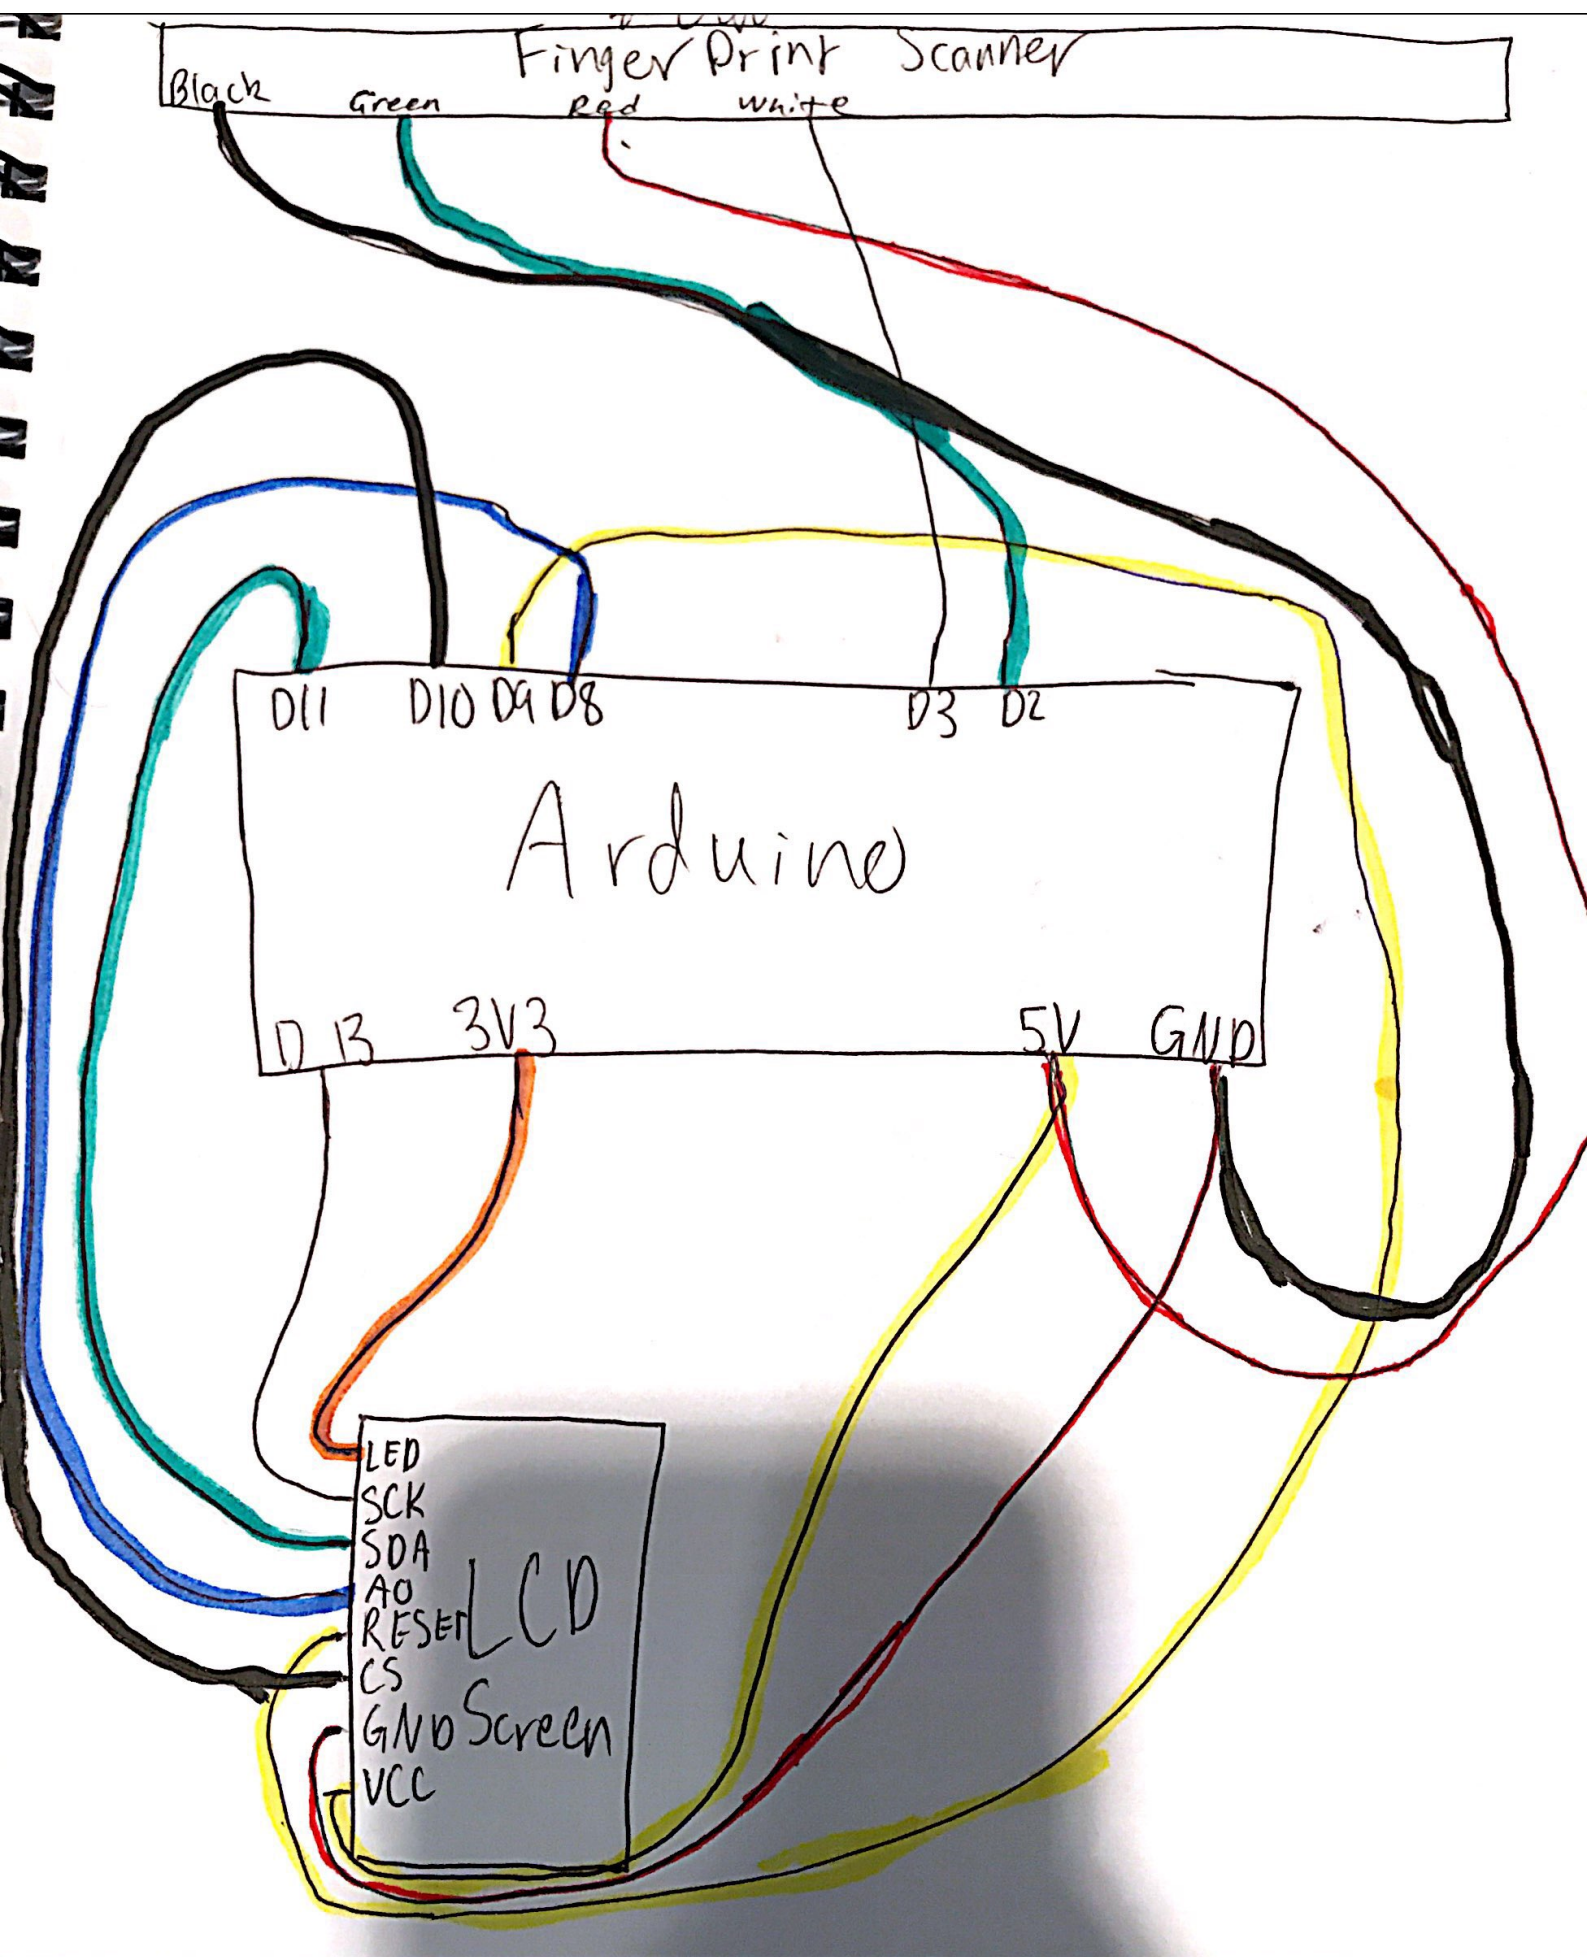 Finger Print Scanner
Black Green Red White
D11 D10 D9 D8 D3 D2
Arduino
D 13 3V3 5V GND
LED
SCK
SDA
A0
RESET
CS
GND
VCC
LCD
Screen